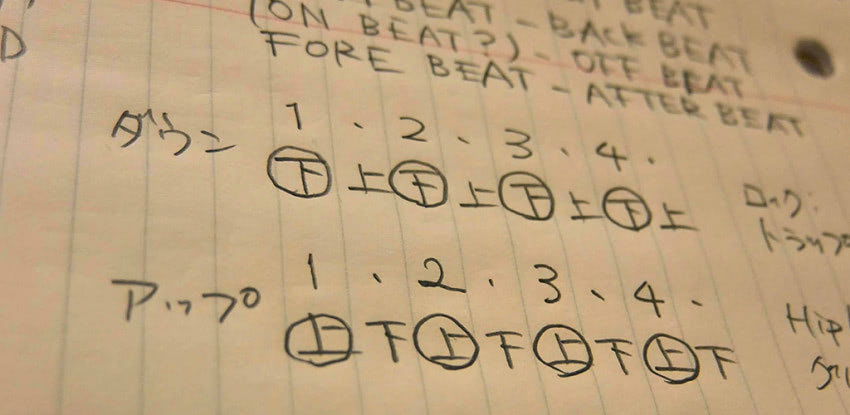 BEAT - BEAT
(ON BEAT?) - BACK BEAT
FORE BEAT - OFF BEAT
- AFTER BEAT
D
ダウン 1 · 2 · 3 · 4 ·
下 上 下 上 下 上 下 上
ロック:
トラップ
アップ 1 · 2 · 3 · 4 ·
上 下 上 下 上 下 上 下
Hip